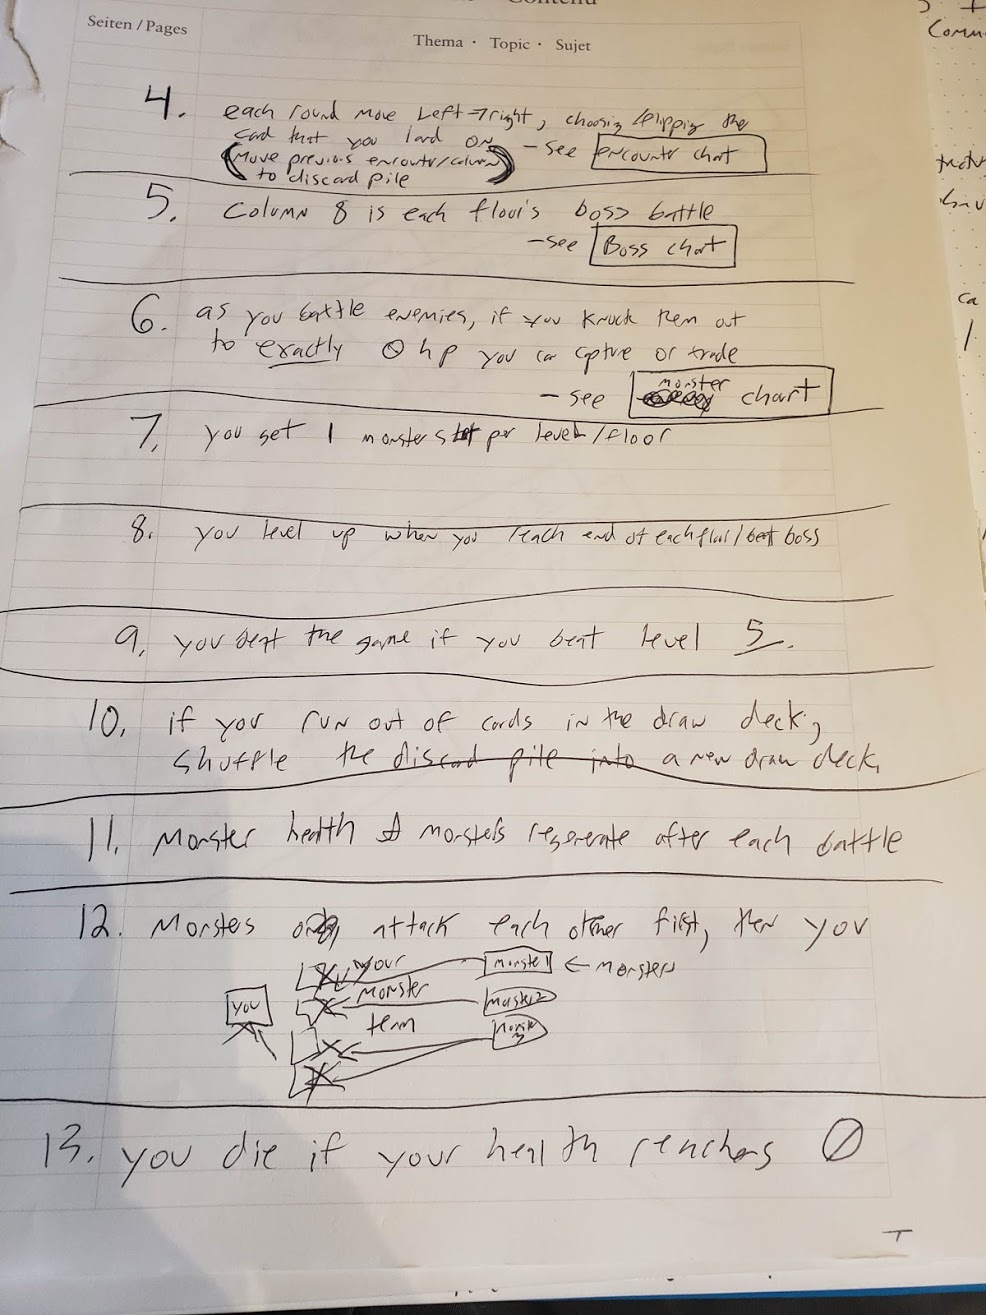 Contenu
Seiten / Pages
Thema · Topic · Sujet
Comm
4. each round move Left → right, choosing / flipping the
card that you land on
(Move previous encounter/column
to discard pile)
- see encounter chart
5. Column 8 is each floor's boss battle
- see Boss chart
6. as you battle enemies, if you knock them out
to exactly 0 hp you can capture or trade
- see monster chart
ca
1.
7. you get 1 monster slot per level/floor
8. you level up when you reach end of each floor/beat boss
9. you beat the game if you beat level 5.
10. if you run out of cards in the draw deck,
shuffle the discard pile into a new draw deck.
11. Monster health & monsters regenerate after each battle
12. Monsters attack each other first, then you
your
monster
team
monster 1 ← monsters
monster 2
monster 3
you
13. you die if your health reachers 0